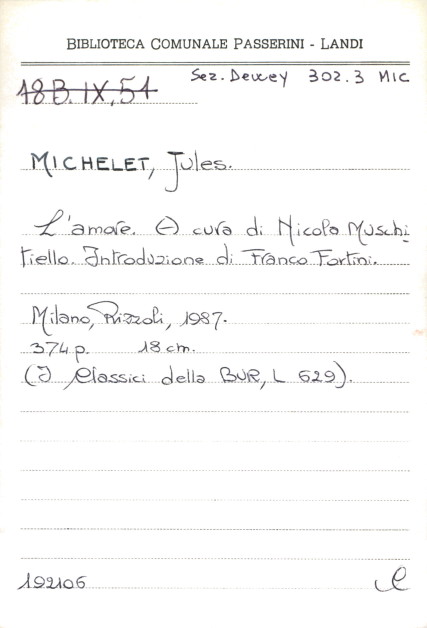 BIBLIOTECA COMUNALE PASSERINI - LANDI
Sez. Dewey 302.3 MIC
18B.IX.51
MICHELET, Jules.
L'amore. (A) cura di Nicola Muschi
tiello. Introduzione di Franco Fortini.
Milano, Rizzoli, 1987.
374 p. 18 cm.
(I Classici della BUR, L 629).
192106